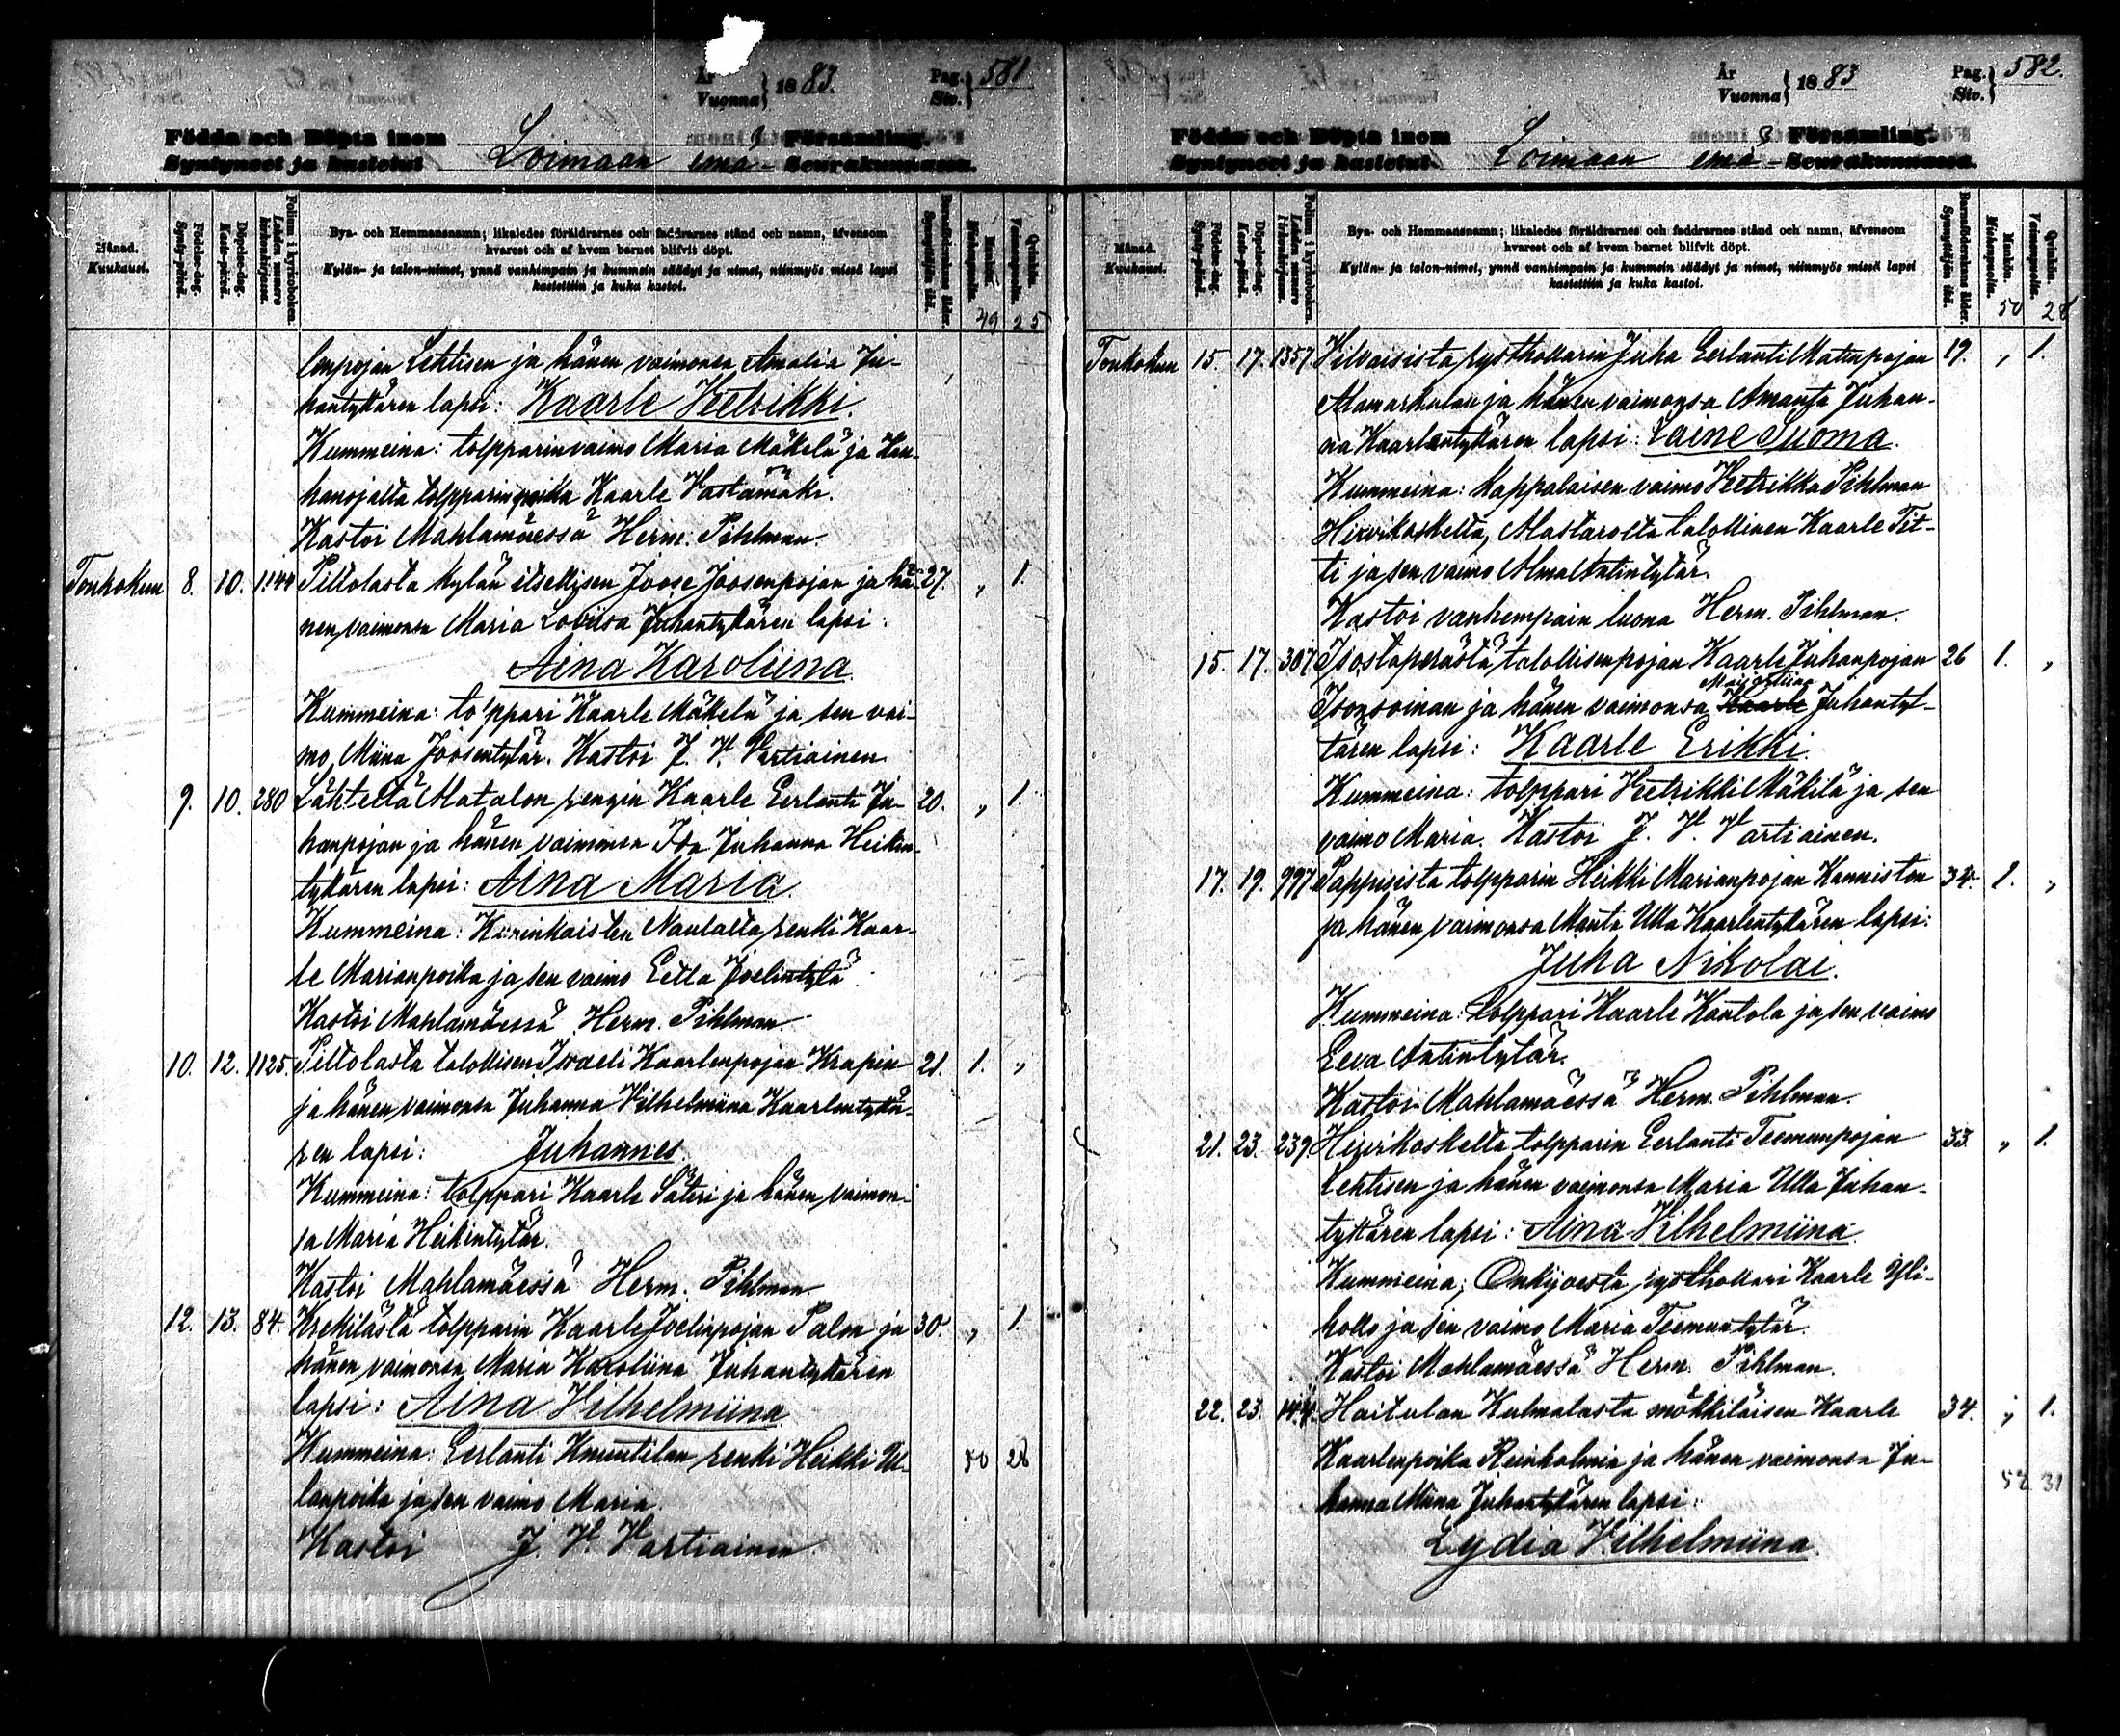 År
Vuonna } 1883.
Pag.
Siv. } 581
Födda och Döpta inom Församling.
Syntyneet ja kastetut Loimaan emä- Seurakunnassa.
Månad.
Kuukausi.
Födelse-dag.
Synty-päivä.
Döpelse-dag.
Kaste-päivä.
Folium i kyrkoboken.
Lehden numero kirkonkirjassa.
Bya- och Hemmansnamn; likaledes föräldrarnes och faddrarnes stånd och namn, äfvensom
hvarest och af hvem barnet blifvit döpt.
Kylän- ja talon-nimet, ynnä vanhimpain ja kummein säädyt ja nimet, niinmyös missä lapsi
kastettiin ja kuka kastoi.
Barnaföderskans ålder.
Synnyttäjän ikä.
Mankön.
Miehenpuolia.
Qvinkön.
Vaimonpuolia.
49 25
lenpojan Lehtisen ja hänen vaimonsa Amalia Ju-
hantyttären lapsi: Kaarle Vretrikki.
Kummeina: tolpparinvaimo Maria Mäkelä ja Kau-
hanojalta tolpparinpoika Kaarle Vastamäki.
Kastoi Mahlamäessä Herm. Pihlman.
Toukokuu 8. 10. 1144 Piltolasta kylän itsellisen Joose Joosenpojan ja hä- 27. „ 1.
nen vaimonsa Maria Loviisa Juhantyttären lapsi:
Aina Karoliina.
Kummeina: tolppari Kaarle Mäkelä ja sen vai-
mo, Miina Joosentytär. Kastoi J. V. Vartiainen
9. 10. 280 Lähteeltä Alatalon rengin Kaarle Eerlanti Ju- 20. „ 1.
hanpojan ja hänen vaimonsa Ida Juhanna Heikin-
tyttären lapsi: Aina Maria.
Kummeina: Karinkaisten Naulalta renki Kaar-
le Marianpoika ja sen vaimo Eetla Joelintytä
Kastoi Mahlamäessä Herm. Pihlman.
10. 12. 1125. Piltolasta talollisen Israeli Kaarlenpojan Krapin 21. 1. „
ja hänen vaimonsa Juhanna Vilhelmiina Kaarlentyttä-
ren lapsi: Juhannes.
Kummeina: tolppari Kaarle Säteri ja hänen vaimon-
sa Maria Heikintytär.
Kastoi Mahlamäessä Herm. Pihlman
12. 13. 84. Krekilästä tolpparin Kaarle Joelinpojan Palon ja 30. „ 1.
hänen vaimonsa Maria Karoliina Juhantyttären
lapsi: Aina Vilhelmiina
Kummeina: Eerlanti Knuutilan renki Heikki Ul- 50 28
lanpoika ja sen vaimo Maria.
Kastoi J. V. Vartiainen.
År
Vuonna } 1883
Pag.
Siv. } 582.
Födda och Döpta inom Församling.
Syntyneet ja kastetut Loimaan emä- Seurakunnassa.
Månad.
Kuukausi.
Födelse-dag.
Synty-päivä.
Döpelse-dag.
Kaste-päivä.
Folium i kyrkoboken.
Lehden numero kirkonkirjassa.
Bya- och Hemmansnamn; likaledes föräldrarnes och faddrarnes stånd och namn, äfvensom
hvarest och af hvem barnet blifvit döpt.
Kylän- ja talon-nimet, ynnä vanhimpain ja kummein säädyt ja nimet, niinmyös missä lapsi
kastettiin ja kuka kastoi.
Barnaföderskans ålder.
Synnyttäjän ikä.
Mankön.
Miehenpuolia.
Qvinkön.
Vaimonpuolia.
50 28
Toukokuu 15. 17. 1357. Vilvaisista rysthollarin Juha Eerlanti Matinpojan 19. „ 1.
Alamarkulan ja hänen vaimonsa Amanta Juhan-
na Kaarlentyttären lapsi: Laine Suoma.
Kummeina: kappalaisen vaimo Vretrikka Pihlman
Hirvikoskelta, Alastarolta talollinen Kaarle Tit-
ti ja sen vaimo Alma Antintytär.
Kastoi vanhempain luona Herm. Pihlman.
15. 17. 307. Isostaperästä talollisenpojan Kaarle Juhanpojan 26 1. „
Maijastiina
Isonsoinan ja hänen vaimonsa Kaarle Juhantyt-
tären lapsi: Kaarle Erikki.
Kummeina: tolppari Vretrikki Mäkilä ja sen
vaimo Maria. Kastoi J. V. Vartiainen.
17. 19. 997 Pappisista tolpparin Heikki Marianpojan Kanniston 34. 1. „
ja hänen vaimonsa Manta Ulla Kaarlentyttären lapsi:
Juha Nikolai.
Kummeina: tolppari Kaarle Kantola ja sen vaimo
Eeva Antintytär.
Kastoi Mahlamäessä Herm. Pihlman.
21. 23. 239 Hirvikoskelta tolpparin Eerlanti Teemunpojan 33. „ 1.
Lehtisen ja hänen vaimonsa Maria Ulla Juhan-
tyttären lapsi: Aina Vilhelmiina.
Kummeina; Onkijoesta rysthollari Kaarle Yli-
hollo ja sen vaimo Maria Teemuntytär.
Kastoi Mahlamäessä Herm. Pihlman.
22. 23. Haitulan Kulmalasta mökkiläisen Kaarle 34. „ 1.
Kaarlenpoika Reinholmin ja hänen vaimonsa Ju- 52 31
hanna Miina Juhantyttären lapsi:
Lydia Vilhelmiina.